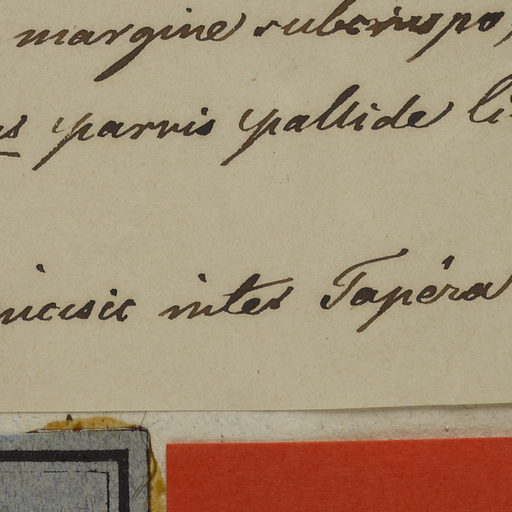 margine subcrispo,
parvis pallide li
incisis inter Tapéra